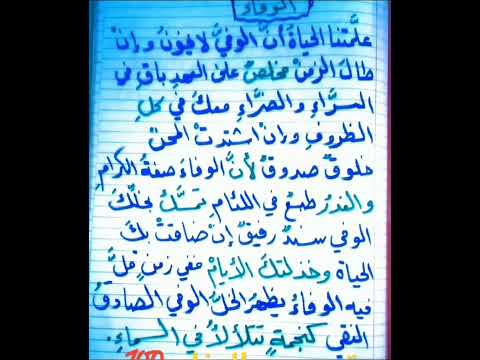 الوفاء
علَّمتنا الحياةُ أنَّ الوفيَّ لا يخونُ وإنْ
طالَ الزمنْ مخلصٌ على العهدِ باقٍ في
السرَّاءِ والضرَّاءِ معكَ في كلِّ
الظروفِ وإنْ اشتدتْ المحنْ
خلوقٌ صدوقٌ لأنَّ الوفاءَ صفةُ الكرامِ
والغدرُ طبعٌ في اللئامِ تمسَّكْ بخلِّكَ
الوفي سندٌ رفيقٌ إنْ ضاقتْ بكَ
الحياة وخذلتكَ الأيامْ ففي زمنٍ قلَّ
فيه الوفاءُ يظهرُ الخلُّ الوفي الصادقُ
النقي كنجمةٍ تتلألأُ في السماءِ.